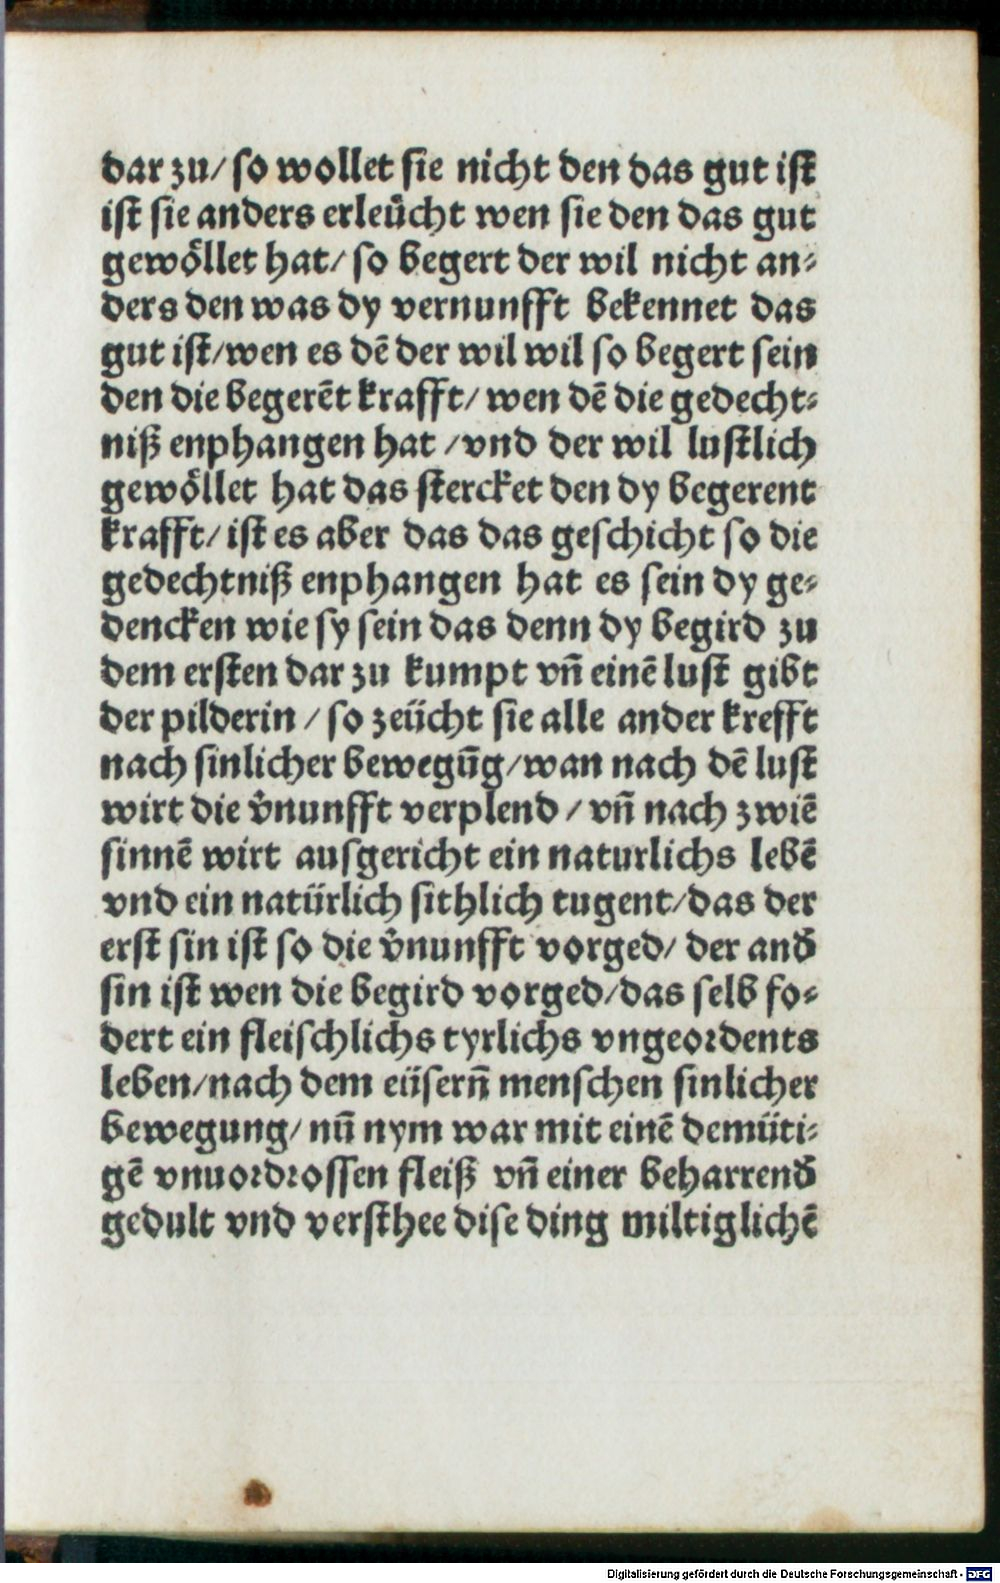 dar zu/ so wollet sie nicht den das gut ist
ist sie anders erleücht wen sie den das gut
gewöllet hat/ so begert der wil nicht an⸗
ders den was dy vernunfft bekennet das
gut ist/wen es dē der wil wil so begert sein
den die begerēt krafft/ wen dē die gedecht⸗
niß enphangen hat /vnd der wil lustlich
gewöllet hat das stercket den dy begerent
krafft/ ist es aber das das geschicht so die
gedechtniß enphangen hat es sein dy ge⸗
dencken wie sy sein das denn dy begird zu
dem ersten dar zu kumpt vñ einē lust gibt
der pilderin / so zeücht sie alle ander krefft
nach sinlicher bewegūg/wan nach dē lust
wirt die v̉nunfft verplend / vñ nach zwiē
sinnē wirt ausgericht ein naturlichs lebē
vnd ein natürlich sithlich tugent/das der
erst sin ist so die v̉nunfft vorged/ der and̉
sin ist wen die begird vorged/das selb fo⸗
dert ein fleischlichs tyrlichs vngeordents
leben/nach dem eüserñ menschen sinlicher
bewegung/ nū nym war mit einē demüti⸗
gē vnuordrossen fleiß vñ einer beharrend̉
gedult vnd versthee dise ding miltiglichē
Digitalisierung gefördert durch die Deutsche Forschungsgemeinschaft - DFG